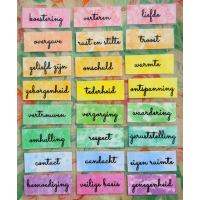 koestering verteren liefde
overgave rust en stilte troost
geliefd zijn onschuld warmte
geborgenheid tederheid ontspanning
vertrouwen verzorging waardering
omhulling respect geruststelling
contact aandacht eigen ruimte
bemoediging veilige basis genegenheid